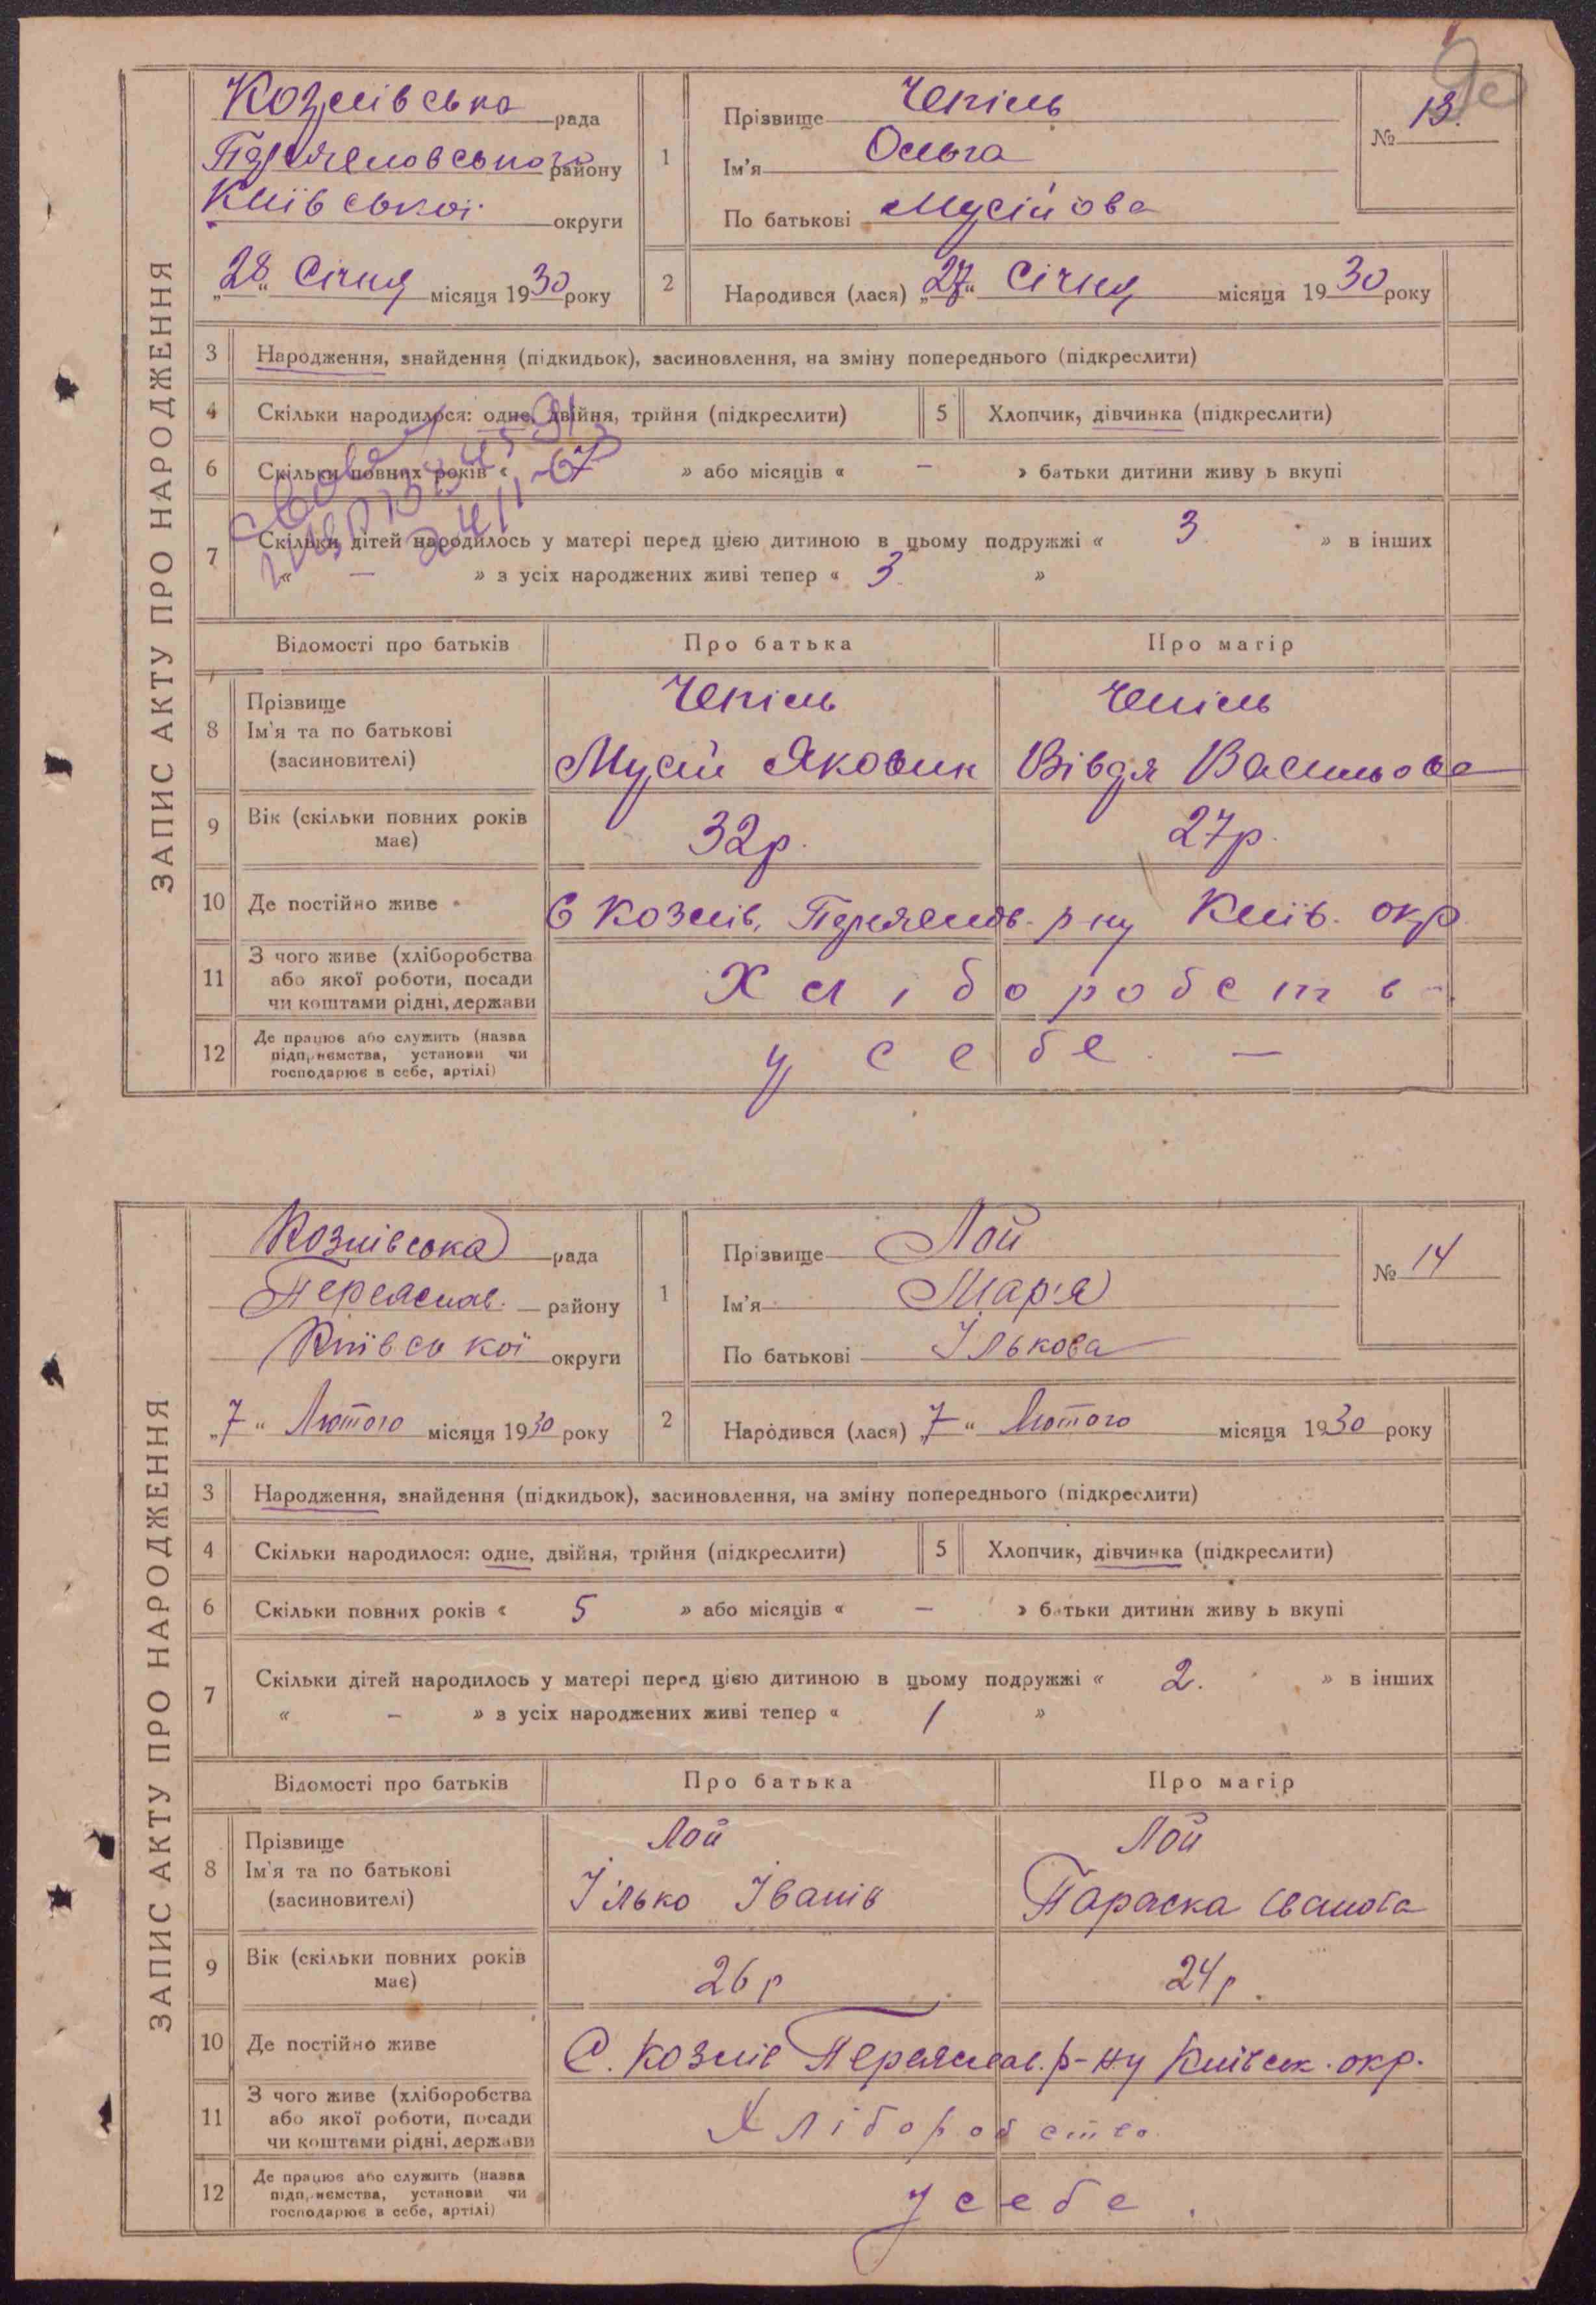 ЗАПИС АКТУ ПРО НАРОДЖЕННЯ
Козлівська рада
району
Київської округи
„28“ Січня місяця 1930 року
1
Прізвище Чепіль
Ім'я Ольга
По батькові Мусійова
№ 13.
2
Народився (лася) „27“ Січня місяця 1930 року
3 Народження, знайдення (підкидьок), засиновлення, на зміну попереднього (підкреслити)
4 Скільки народилося: одне, двійня, трійня (підкреслити)
5 Хлопчик, дівчинка (підкреслити)
6 Скільки повних років « » або місяців « — » батьки дитини живу ь вкупі
7 Скільки дітей народилось у матері перед цією дитиною в цьому подружжі « 3 » в інших
« — » з усіх народжених живі тепер « 3. »
Відомості про батьків Про батька Про матір
8 Прізвище
Ім'я та по батькові
(засиновителі)
Чепіль
Мусій Якович
Чепіль
Вівдя Васильова
9 Вік (скільки повних років має) 32р. 27р.
10 Де постійно живе С Козлів, р ну Київ. окр.
11 З чого живе (хліборобства або якої роботи, посади чи коштами рідні, держави Хліборобств
12 Де працює або служить (назва підприємства, установи чи господарює в себе, артілі) у себе. —
ЗАПИС АКТУ ПРО НАРОДЖЕННЯ
Козлівська рада
Переяслав. району
Київської округи
„7“ Лютого місяця 1930 року
1
Прізвище Лой
Ім'я Мар'я
По батькові Ількова
№ 14
2
Народився (лася) „7“ Лютого місяця 1930 року
3 Народження, знайдення (підкидьок), засиновлення, на зміну попереднього (підкреслити)
4 Скільки народилося: одне, двійня, трійня (підкреслити)
5 Хлопчик, дівчинка (підкреслити)
6 Скільки повних років « 5 » або місяців « — » батьки дитини живу ь вкупі
7 Скільки дітей народилось у матері перед цією дитиною в цьому подружжі « 2. » в інших
« — » з усіх народжених живі тепер « 1 »
Відомості про батьків Про батька Про матір
8 Прізвище
Ім'я та по батькові
(засиновителі)
Лой
Ілько Іванів
Лой
Параска Іванова
9 Вік (скільки повних років має) 26р 24р.
10 Де постійно живе С. Козлів Переяслав. р-ну Київськ. окр.
11 З чого живе (хліборобства або якої роботи, посади чи коштами рідні, держави Хліборобство
12 Де працює або служить (назва підприємства, установи чи господарює в себе, артілі) У себе.